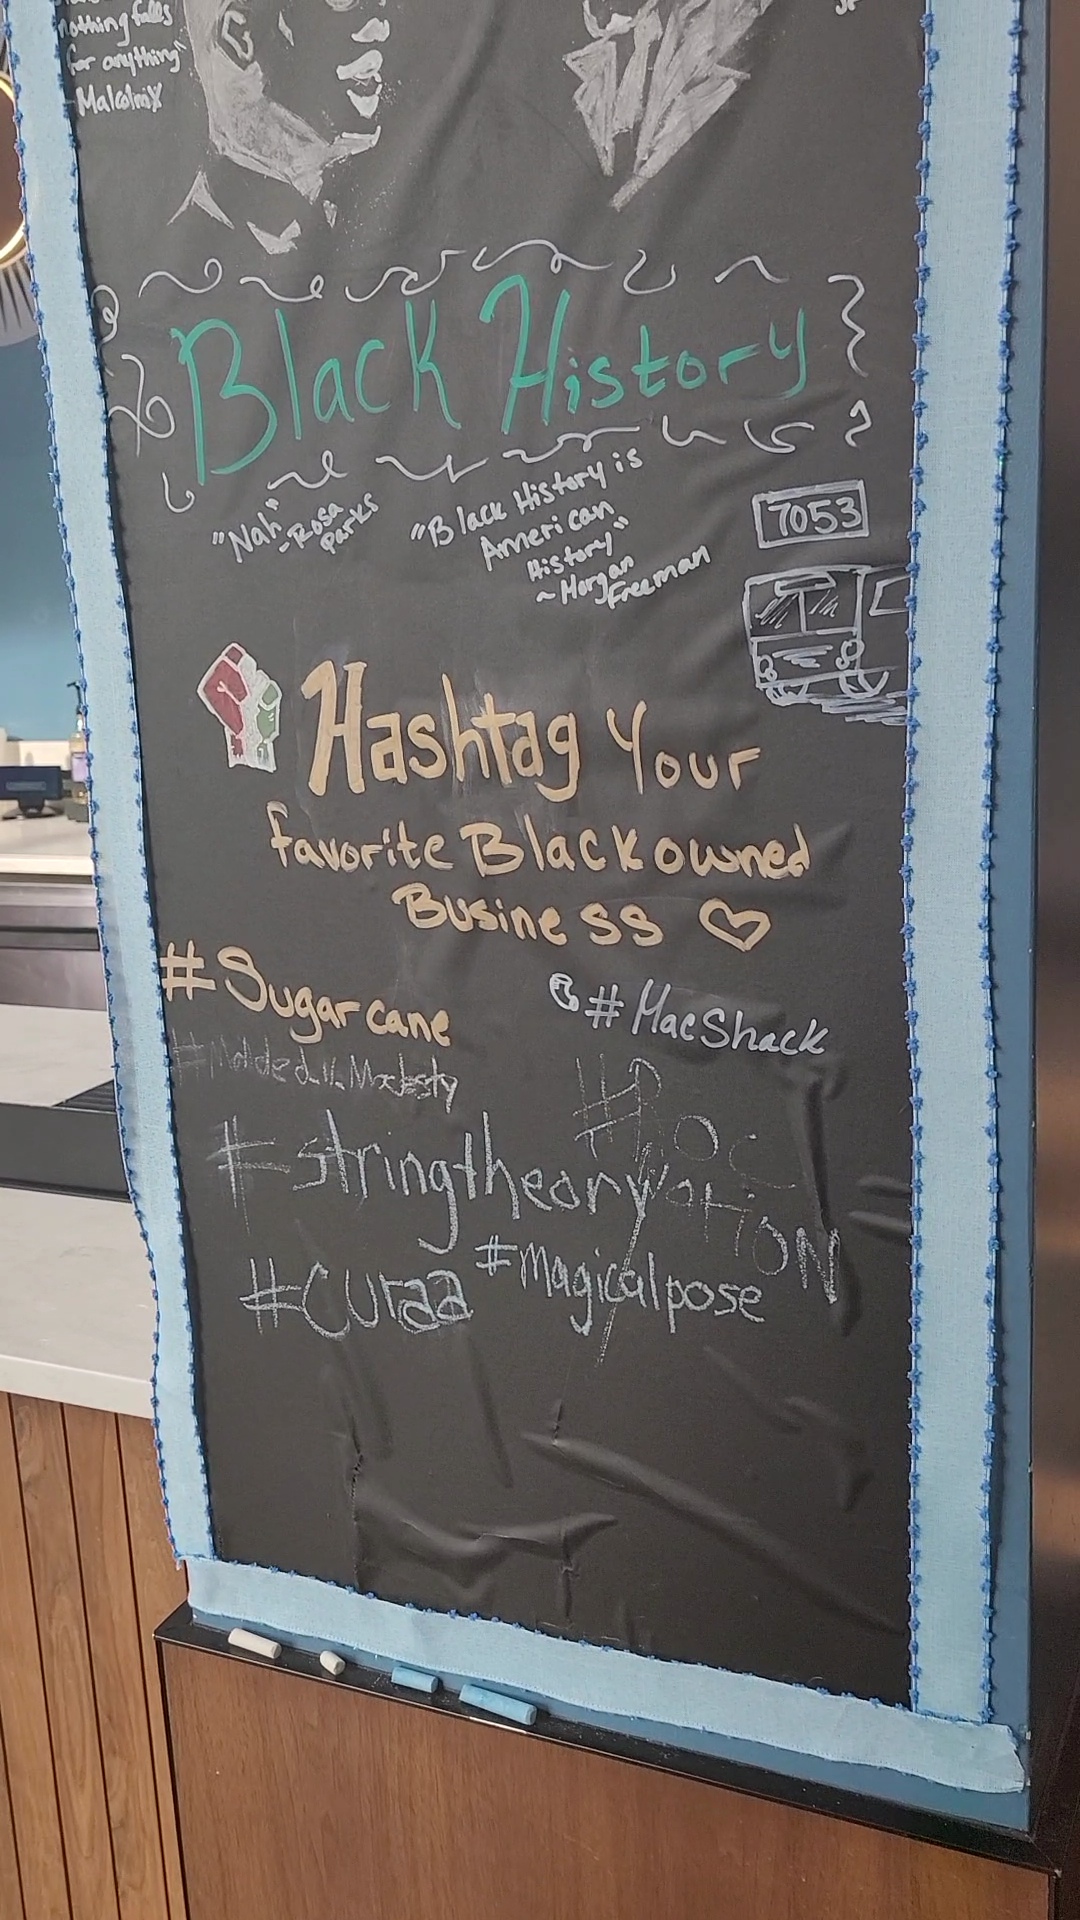 nothing falls
for anything"
Malcolm X
Black History
"Nah"
-Rosa
Parks
"Black History is
American
History"
~ Morgan
Freeman
7053
Hashtag Your
favorite Black owned
Business ♡
#Sugarcane
#MacShack
#Molded_In_Modesty
#ROC
#stringtheory
NatiON
#Curaa
#magicalpose